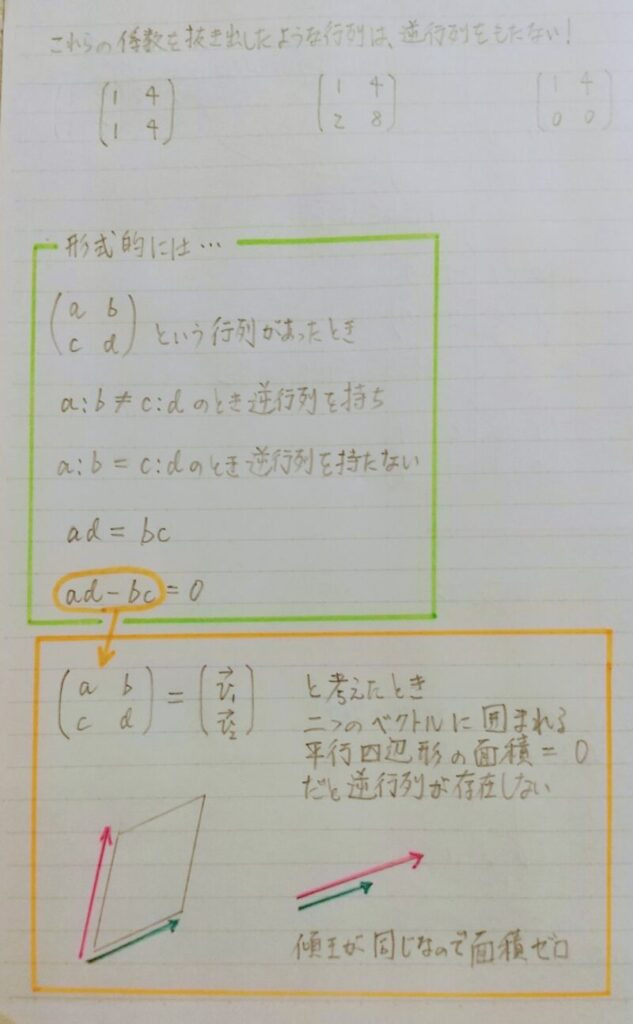 これらの係数を抜き出したような行列は、逆行列をもたない!
(1 4
1 4) (1 4
2 8) (1 4
0 0)
形式的には…
(a b
c d) という行列があったとき
a:b ≠ c:d のとき逆行列を持ち
a:b = c:d のとき逆行列を持たない
ad = bc
ad-bc = 0
(a b
c d) = (v⃗₁
v⃗₂)
と考えたとき
二つのベクトルに囲まれる
平行四辺形の面積 = 0
だと逆行列が存在しない
傾きが同じなので面積ゼロ